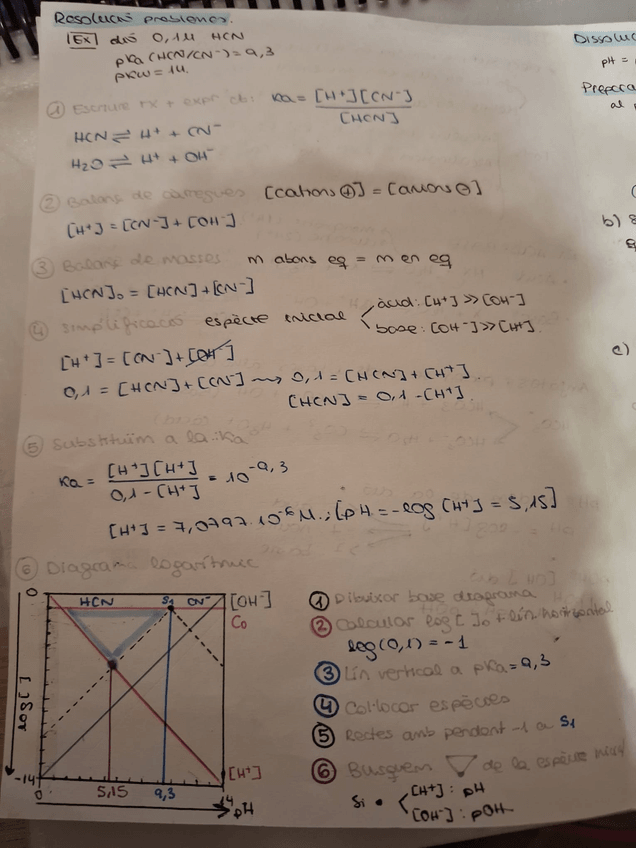 Resolució problemes.
Ex dis 0,1M HCN
pKa (HCN/CN⁻) = 9,3
pKw = 14.
① Escriure rx + expr cti Ka = [H⁺][CN⁻] / [HCN]
HCN ⇌ H⁺ + CN⁻
H₂O ⇌ H⁺ + OH⁻
② Balanç de càrregues [cations ⊕] = [anions ⊖]
[H⁺] = [CN⁻] + [OH⁻]
③ Balanç de masses m abans eq = m en eq
[HCN]₀ = [HCN] + [CN⁻]
④ Simplificació espècie inicial
àcid: [H⁺] >> [OH⁻]
base: [OH⁻] >> [H⁺].
[H⁺] = [CN⁻] + [OH⁻]
0,1 = [HCN] + [CN⁻] ⟿ 0,1 = [HCN] + [H⁺]
[HCN] = 0,1 - [H⁺]
⑤ Substituïm a la Ka
Ka = [H⁺][H⁺] / 0,1 - [H⁺] = 10⁻⁹,³
[H⁺] = 7,0797·10⁻⁶ M.; [pH = -log [H⁺] = 5,15]
⑥ Diagrama logarítmic
0 HCN S₁ CN⁻ [OH⁻]
C₀
log[ ]
[H⁺]
-14
0 5,15 9,3 14
pH
① Dibuixar base diagrama
② Calcular log[ ]₀ + lín. horitzontal
log(0,1) = -1
③ Lín vertical a pKa = 9,3
④ Col·locar espècies
⑤ Rectes amb pendent -1 a S₁
⑥ Busquem ▽ de la espècie
Si •
[H⁺] : pH
[OH⁻] : pOH
Dissoluc
pH =
Prepara
al
b)
c)